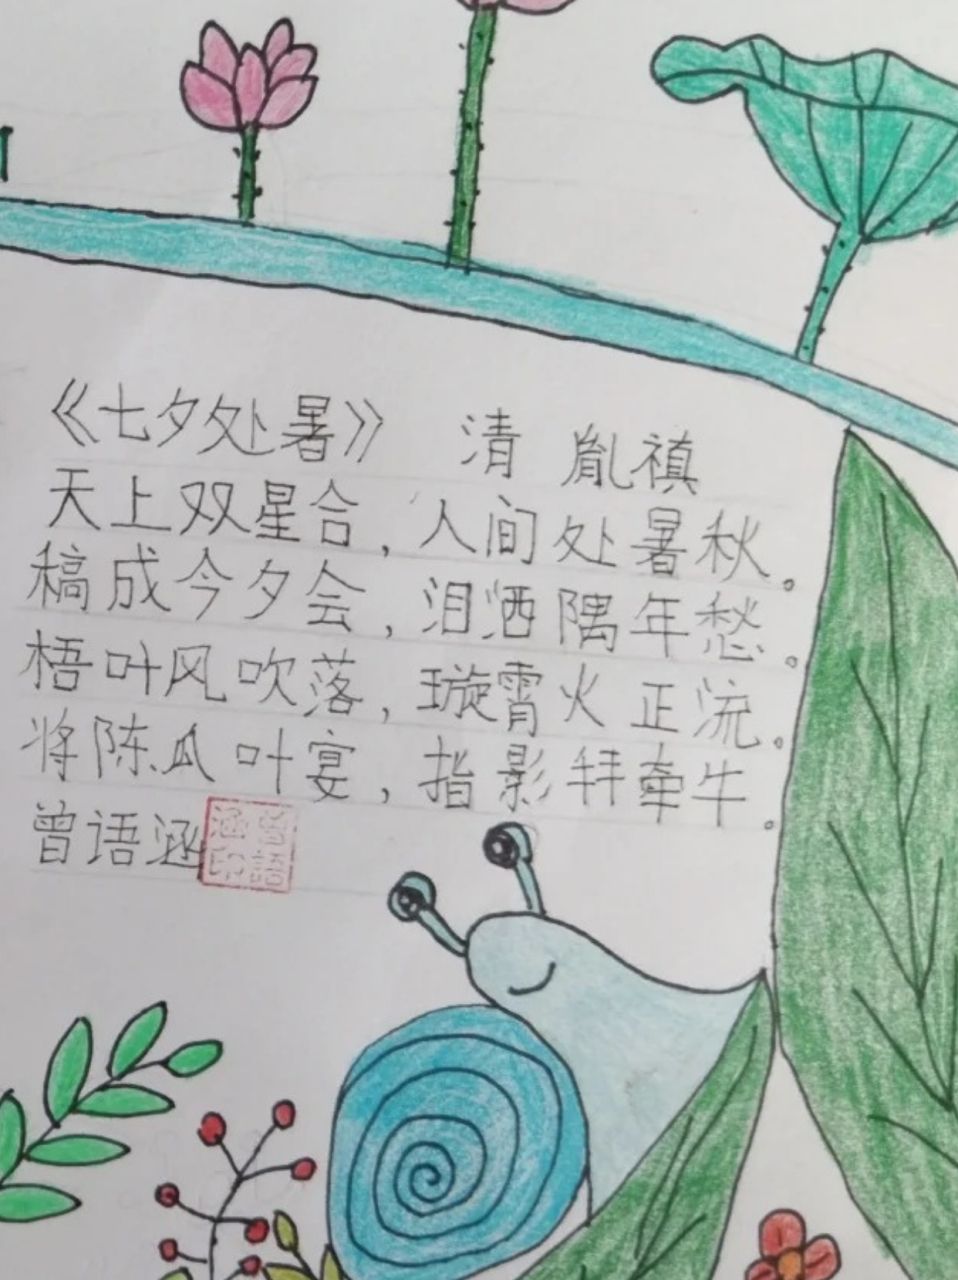 《七夕处暑》 清 胤禛
天上双星合，人间处暑秋。
稿成今夕会，泪洒隅年愁。
梧叶风吹落，璇霄火正流。
将陈瓜叶宴，指影拜牵牛。
曾语涵
曾語涵印